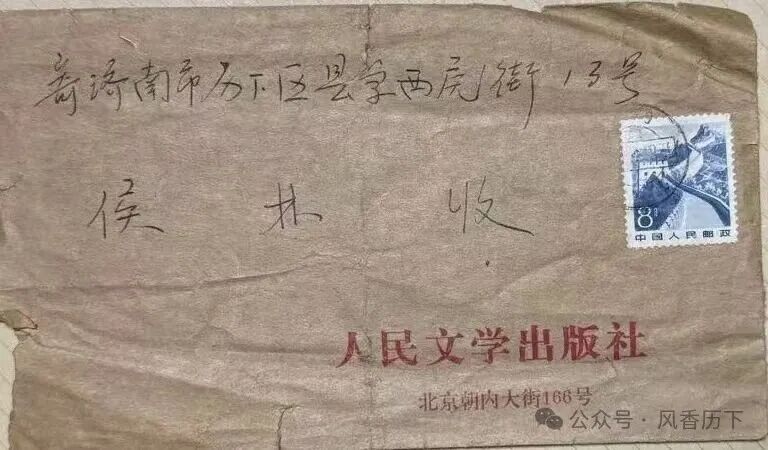 寄济南市历下区县学西庑街13号
侯林 收
8分
中国人民邮政
人民文学出版社
北京朝内大街166号
公众号·风香历下